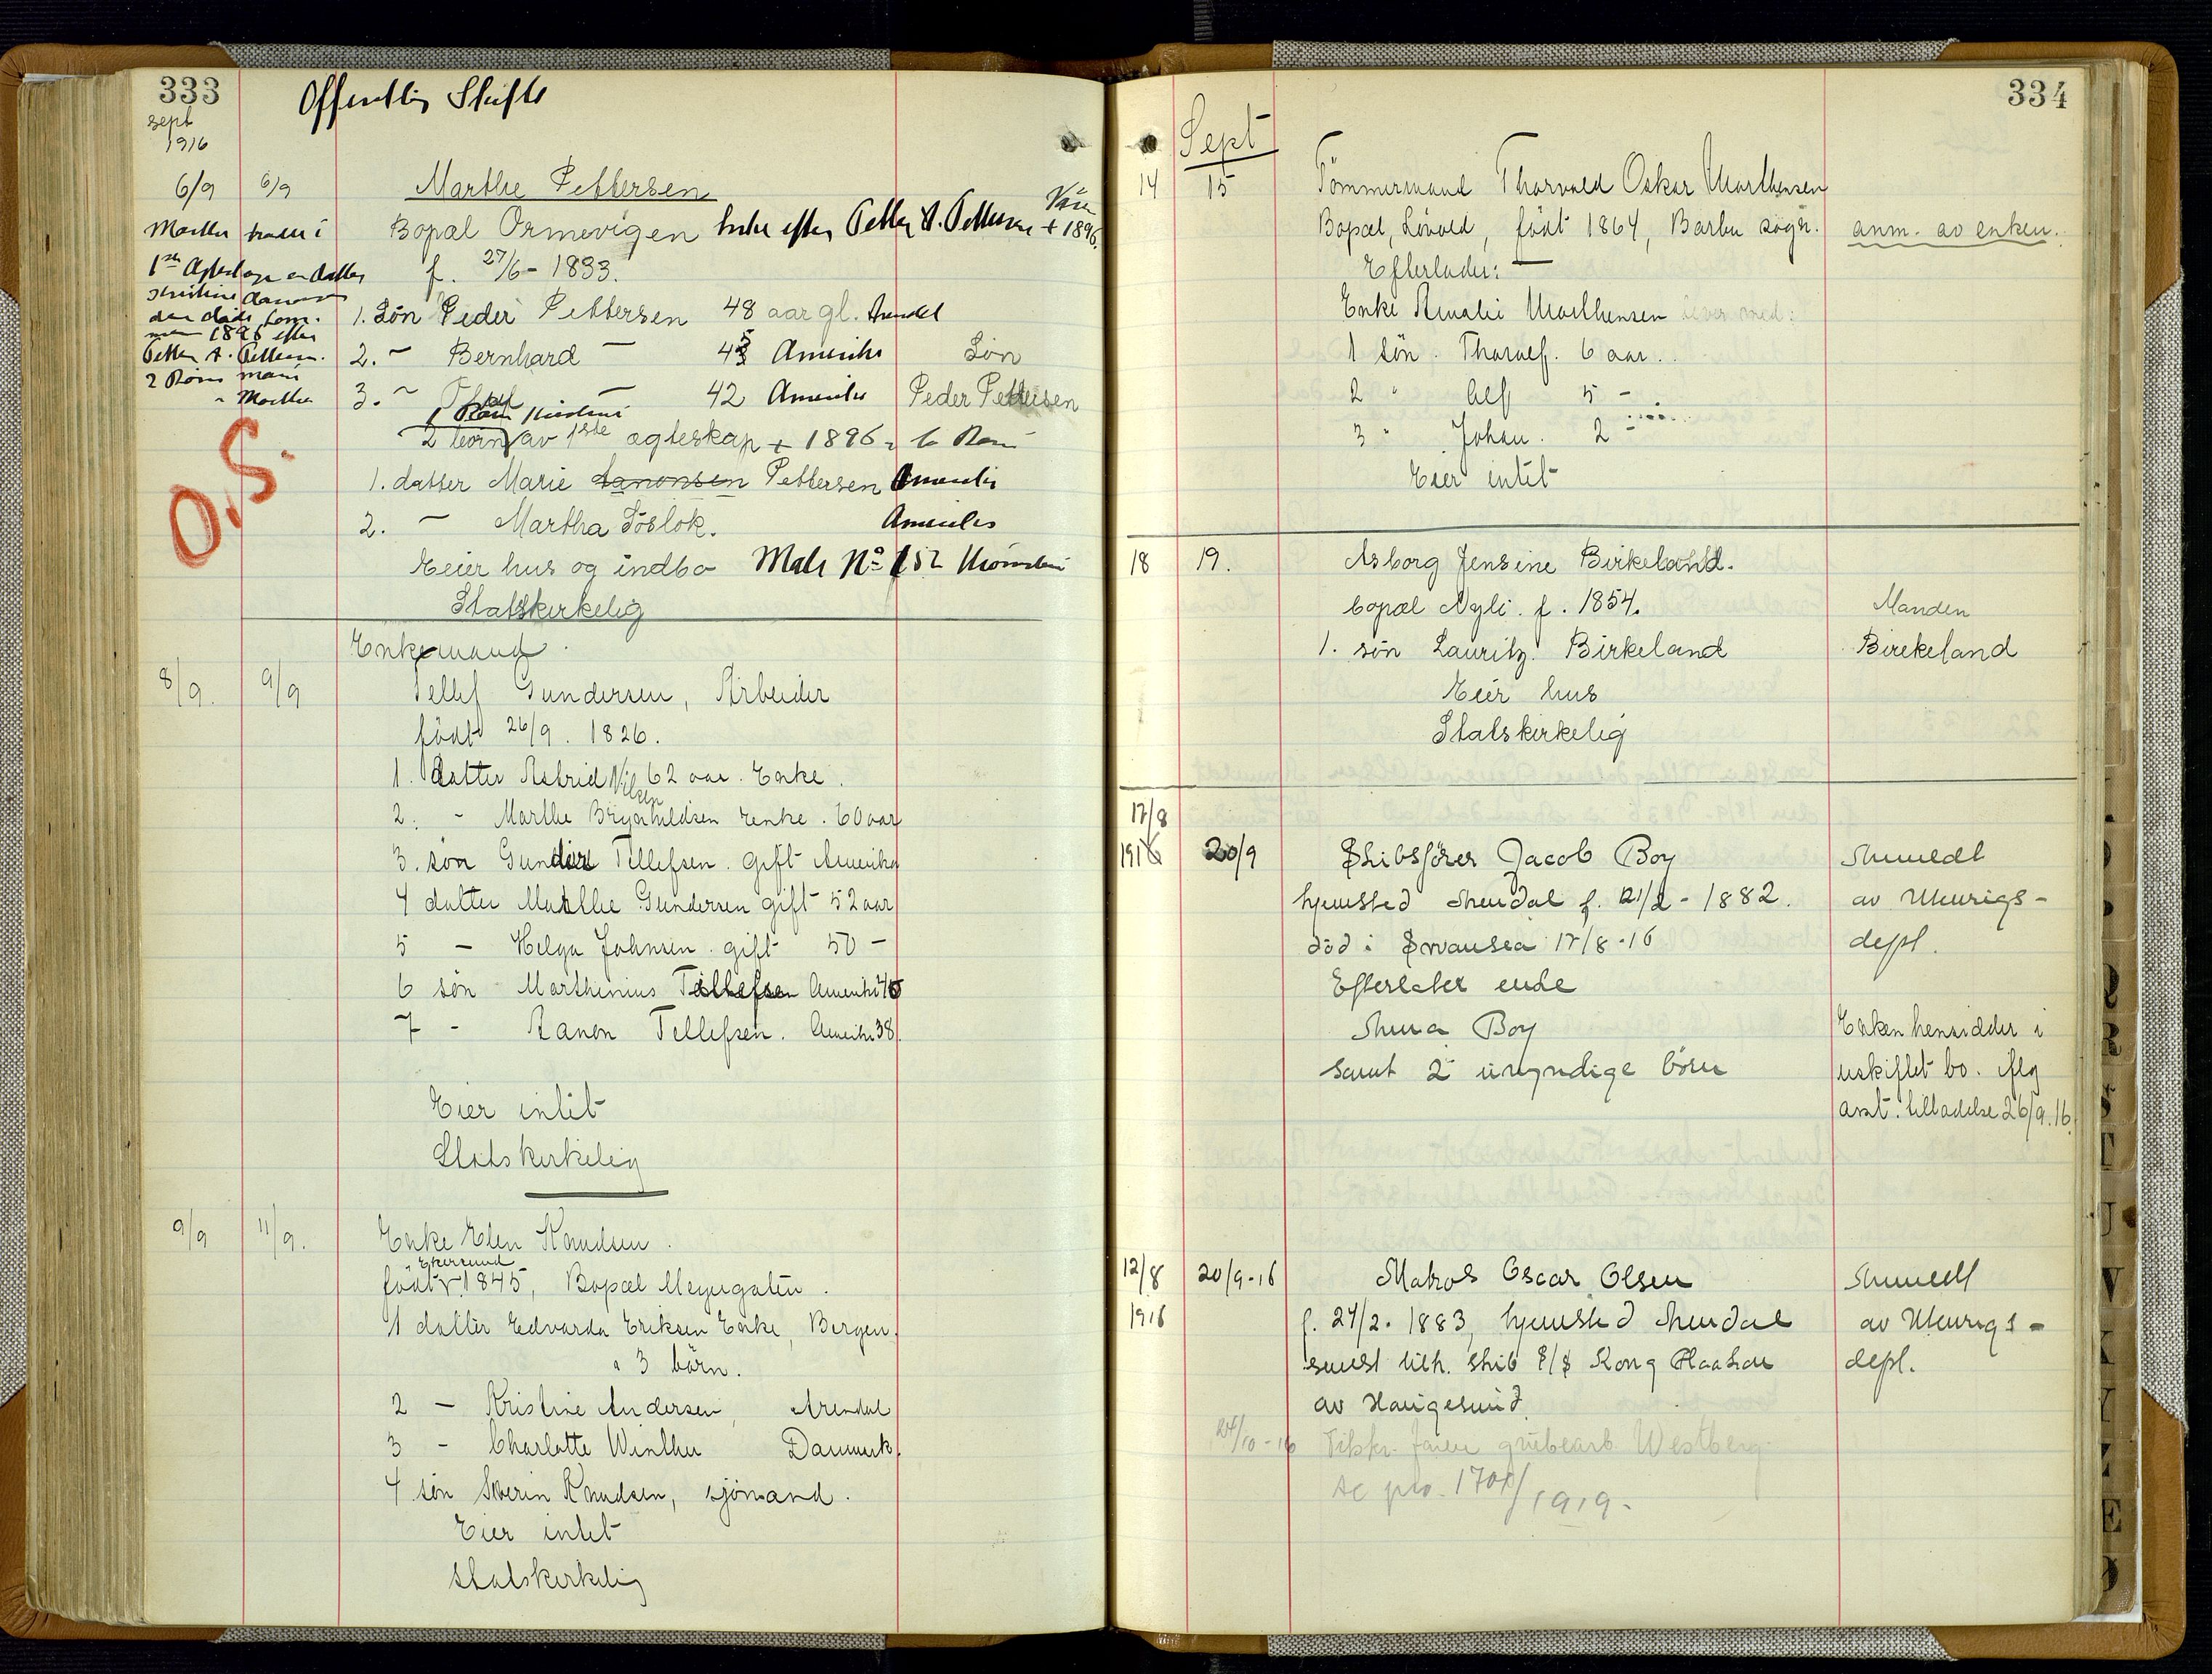 333
Offentlig Skifte
sept
1916
6/9 6/9 Marthe Pettersen
Bopæl Ormevigen Enke efter Petter A. Pettersen + 1896.
Marthe havde i
1ste Ægteskap en datter
f. 27/6 - 1833.
1. Søn Peder Pettersen 48 aar gl. Arendal
2. - Bernhard - 43 Amerika Søn
Petter A. Pettersen
3. - - 42 Amerika Peder Pettersen
- Marthe
2 børn av 1ste ægteskap + 1896
1. datter Marie Aanonsen Pettersen Amerika
2. - Martha Föslok. Amerika
O.S.
Eier hus og indbo Matr No 152
Statskirkelig
Enkemand.
8/9. 9/9 Tellef Gundersen, Arbeider
født 26/9. 1826.
1. datter Astrid Nilsen 62 aar. Enke.
2. - Marthe Brynhuldsen enke. 60 aar
3. søn Gunder Tellefsen. gift Amerika
4 datter Marthe Gundersen gift 52 aar
5 - Helga Johnsen. gift 50 -
6 søn Marthinius Tellefsen Amerika 40
7 - Aanon Tellefsen. Amerika 38.
Eier intet
Statskirkelig
9/9 11/9. Enke Elen Knudsen.
Ekersund
født 1845, Bopæl Meyergaten.
1 datter Edvarda Eriksen Enke, Bergen.
3 børn.
2 - Kristine Andersen, Arendal
3 - Charlotte Winther Danmark.
4 søn Severin Knudsen, sjömand.
Eier intet
statskirkelig
334
Sept
14 15 Tömmermand Thorvald Oskar Marthensen
Bopæl, Løvold, født 1864, Barbu sogn. anm. av enken.
Efterlader:
Enke Amalie Marthensen lever med:
1 søn. Tharalf. 6 aar.
2 " Alf 5 -
3 " Johan. 2 -
Eier intet
18 19. Asborg Jensine Birkeland.
bopæl Nyli. f. 1854. Manden
1. søn Lauritz. Birkeland Birekeland
Eier hus
Statskirkelig
17/8
1916 20/9 Skibsfører Jacob Boy Anmeldt
hjemsted Arendal f. 21/2 - 1882. av Utenrigs-
død i Swansea 17/8-16 depl.
Efterlater enke
Anna Boy Enken hensidder i
samt 2 umyndige børn uskiftet bo. iflg
amt. tilladelse 26/9.16.
12/8 20/9-16 Matros Oscar Olsen Anmeldt
1916 f. 24/2. 1883, hjemsted Arendal av Utenrigs-
senest tilh. skib S/S Kong Haakon depl.
av Haugesund
24/10-16 Westberg.
1919.